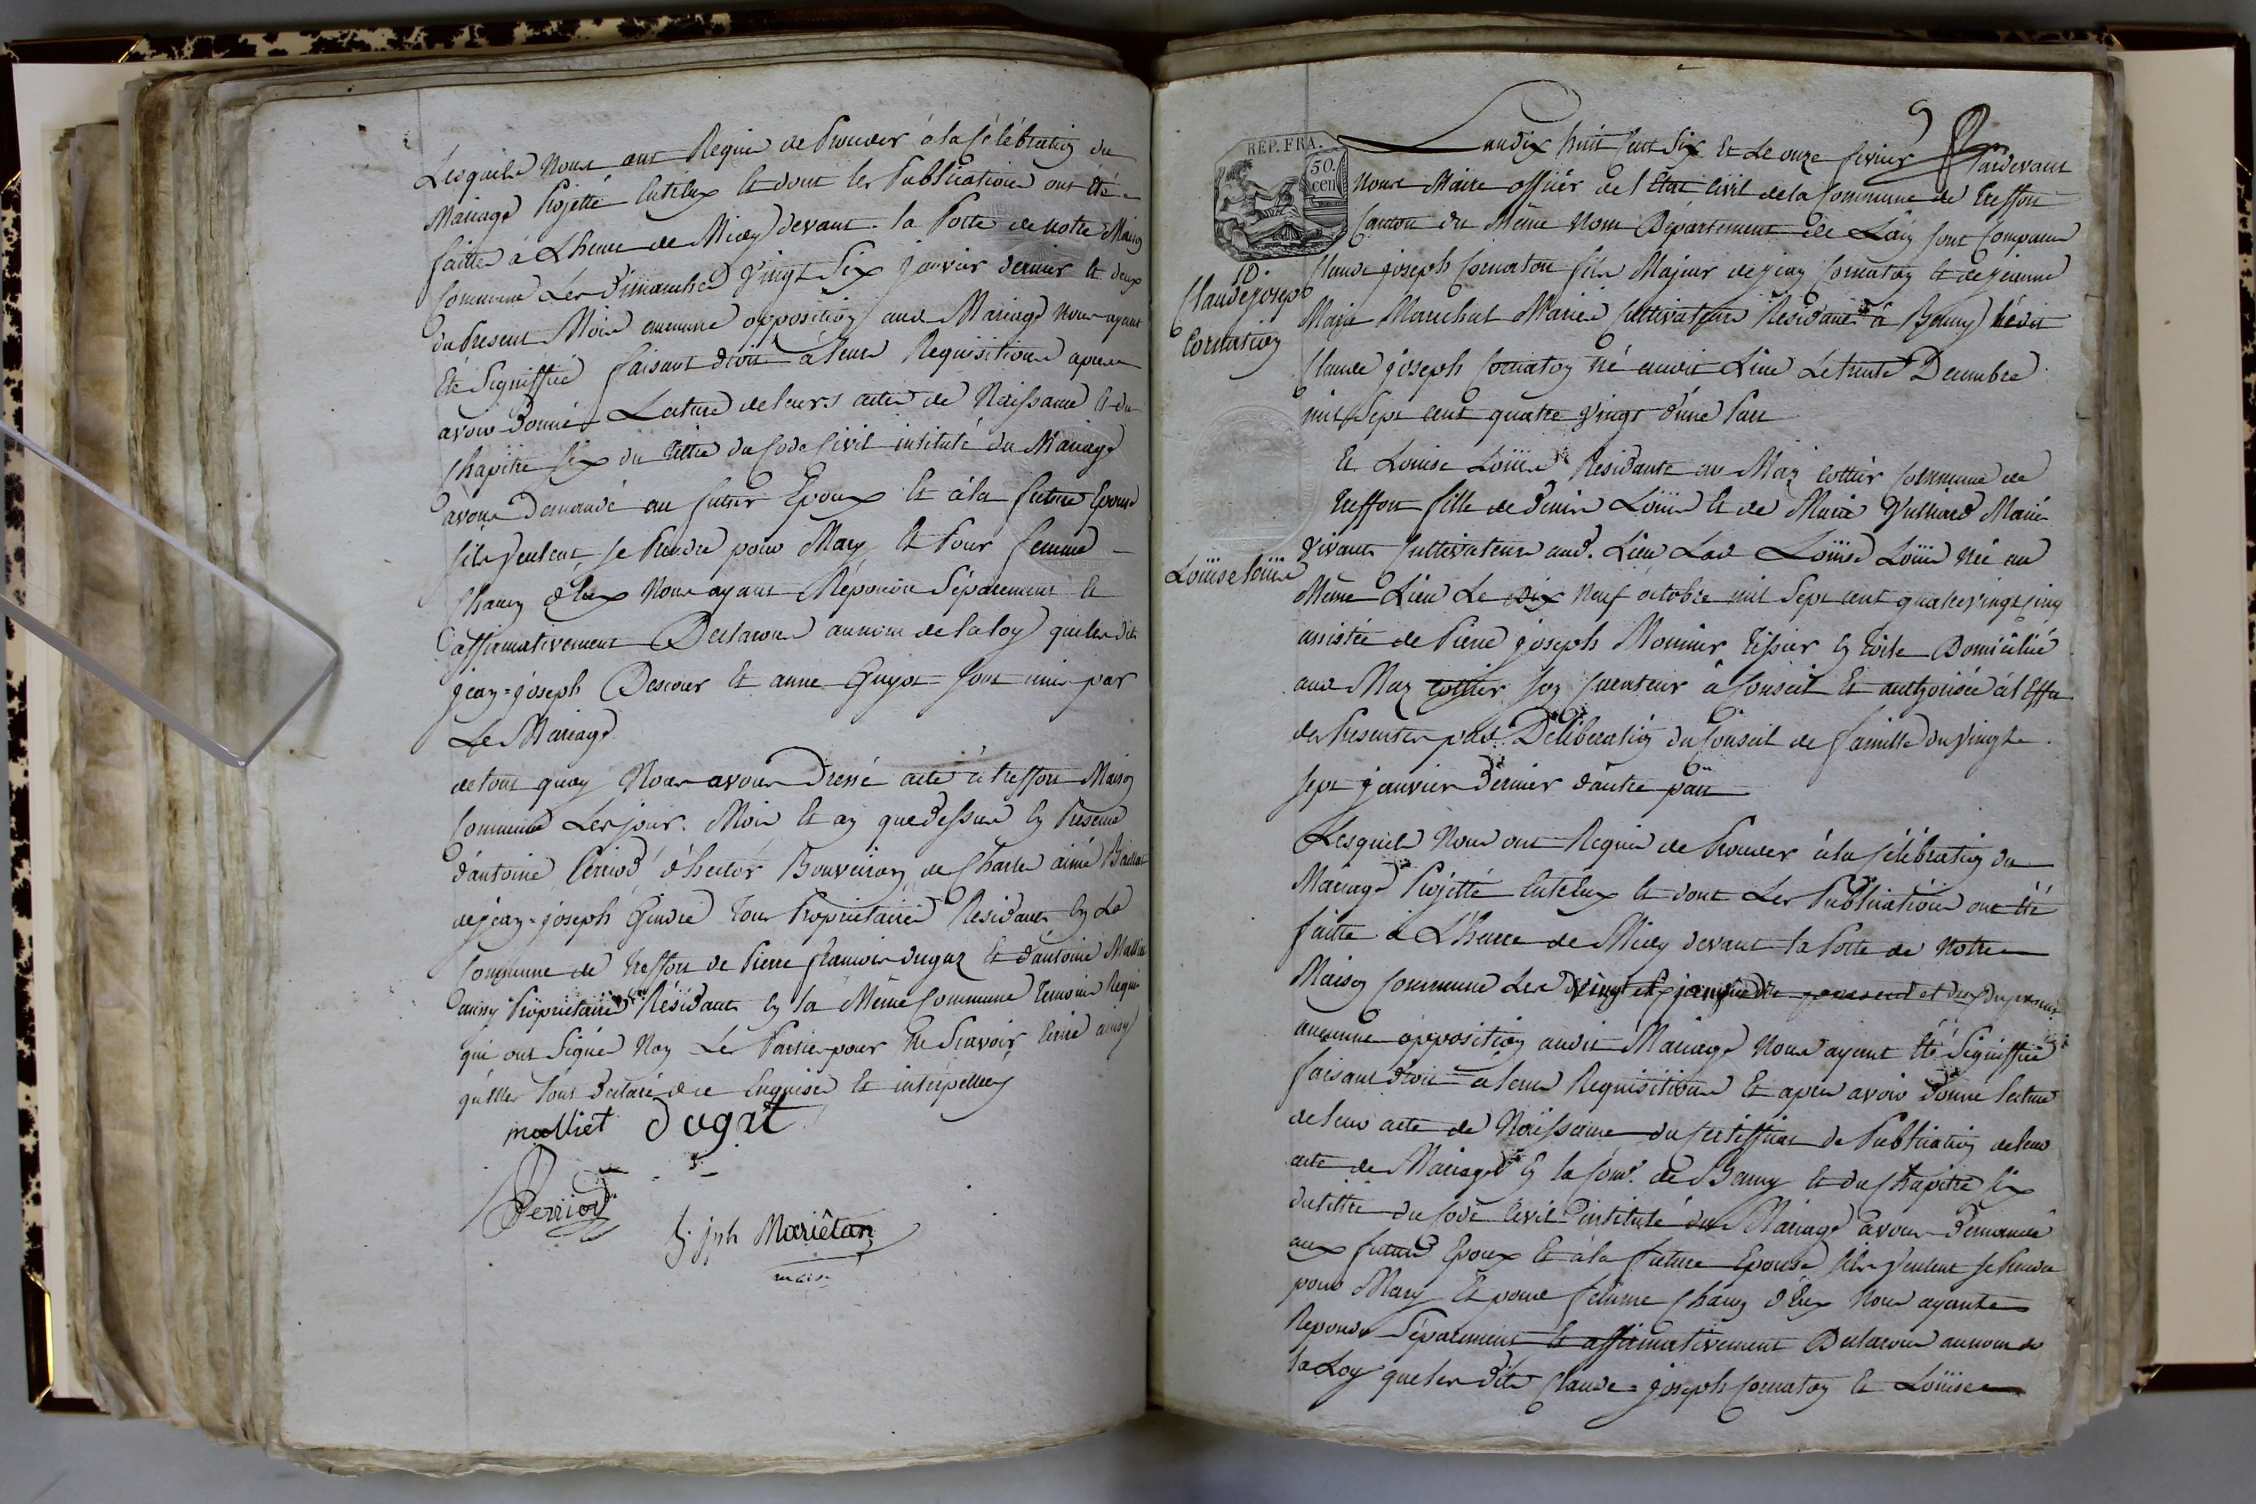 Lesquels Nous ont Requis de Proceder à la Célébration du
Mariage Projetté Entr'eux Et dont les Publications ont Eté
faittes à L'heure de Midy devant la Porte de notre Maison
Commune Les Dimanches Vingt Six Janvier dernier Et deux
du Present Mois aucunne opposition aud Mariage Nous ayant
Eté Signiffiée faisant droit à leurs Requisitions apres
avoir Donné Lecture de leurs actes de Naissance Et du
Chapitre Six du tittre du Code Civil intitulé du Mariage
avons Demandé au futur Epoux Et à la future Epouse
s'ils Veulent se Prendre pour Mary Et Pour femme
Chacun d'Eux Nous ayant Répondu Séparement Et
affirmativement Declarons au nom de la loy que les dits
jean=joseph Descour Et anne Guyot sont unis par
Le Mariage
de tout quoy Nous avons Dressé acte à treffort Maison
Commune Les jour Mois Et an que dessus En Presence
d'antoine Perriod d'hector Bouveiron de Charle aimé
de jean=joseph Gindre tous Proprietaires Residants En La
Commune de treffort de Pierre françois dugaz Et d'antoine
aussy Proprietaires Résidants En la Même Commune temoins Requis
qui ont Signé Non Les Parties pour Ne Scavoir Ecrire ainsy
qu'elles l'ont Declaré de ce Enquises Et interpellées
molliet dugat
Perriod
j. jph Mariêtan
maire
9
REP. FRA.
50.
cen
L'an dix huit Cent Six Et Le onze fevrier Pardevant
Nous Maire officier de l'Etat Civil de la Commune de treffort
Canton du Même Nom Département de L'ain sont Comparus
10
Claude joseph
Cornaton
Claude joseph Cornaton fils Majeur de jean Cornaton Et de jeanne
Marie Marichal Mariés Cultivateurs Residants à Beny ledit
Claude joseph Cornaton né audit Lieu Le trente Decembre
mil Sept cent quatre Vingt d'une Part
Et Louise Loüis Résidante au Maz cottier Commune de
treffort fille de Denis Loüis Et de Marie Vulliard Mariés
Loüise loüis
Vivants Cultivateurs aud. Lieu Lad Loüise Loüis née au
Même Lieu Le dix Neuf octobre mil Sept cent quatrevingt cinq
assistée de Pierre joseph Monnier tissier En toile Domicilié
aud Maz cottier son Curateur à Conseil Et authorisée à l'Effet
des Presentes par Délibération du Conseil de famille du Vingt
sept janvier Dernier d'autre part
Lesquels Nous ont Requis de Proceder à la Célébration du
Mariage Projetté Entr'eux Et dont Les Publications ont Eté
faittes à L'heure de Midy devant la Porte de Notre
Maison Commune Les Vingt six janvier et deux du present
aucunne opposition audit Mariage Nous ayant Eté Signiffiée
faisant droit à leurs Requisitions Et apres avoir Donné lecture
de leur acte de Naissance du Certifficat de Publication de leur
acte de Mariage En la Com.e de Beny Et du Chapitre six
du tittre du Code Civil intitulé du Mariage avons Demandé
aux futurs Epoux Et à la future Epouse s'ils Veulent se Prendre
pour Mary Et pour femme Chacun d'Eux Nous ayants
Repondu Séparement Et affirmativement Declarons au nom de
la Loy que les dits Claude=joseph Cornaton Et Loüise